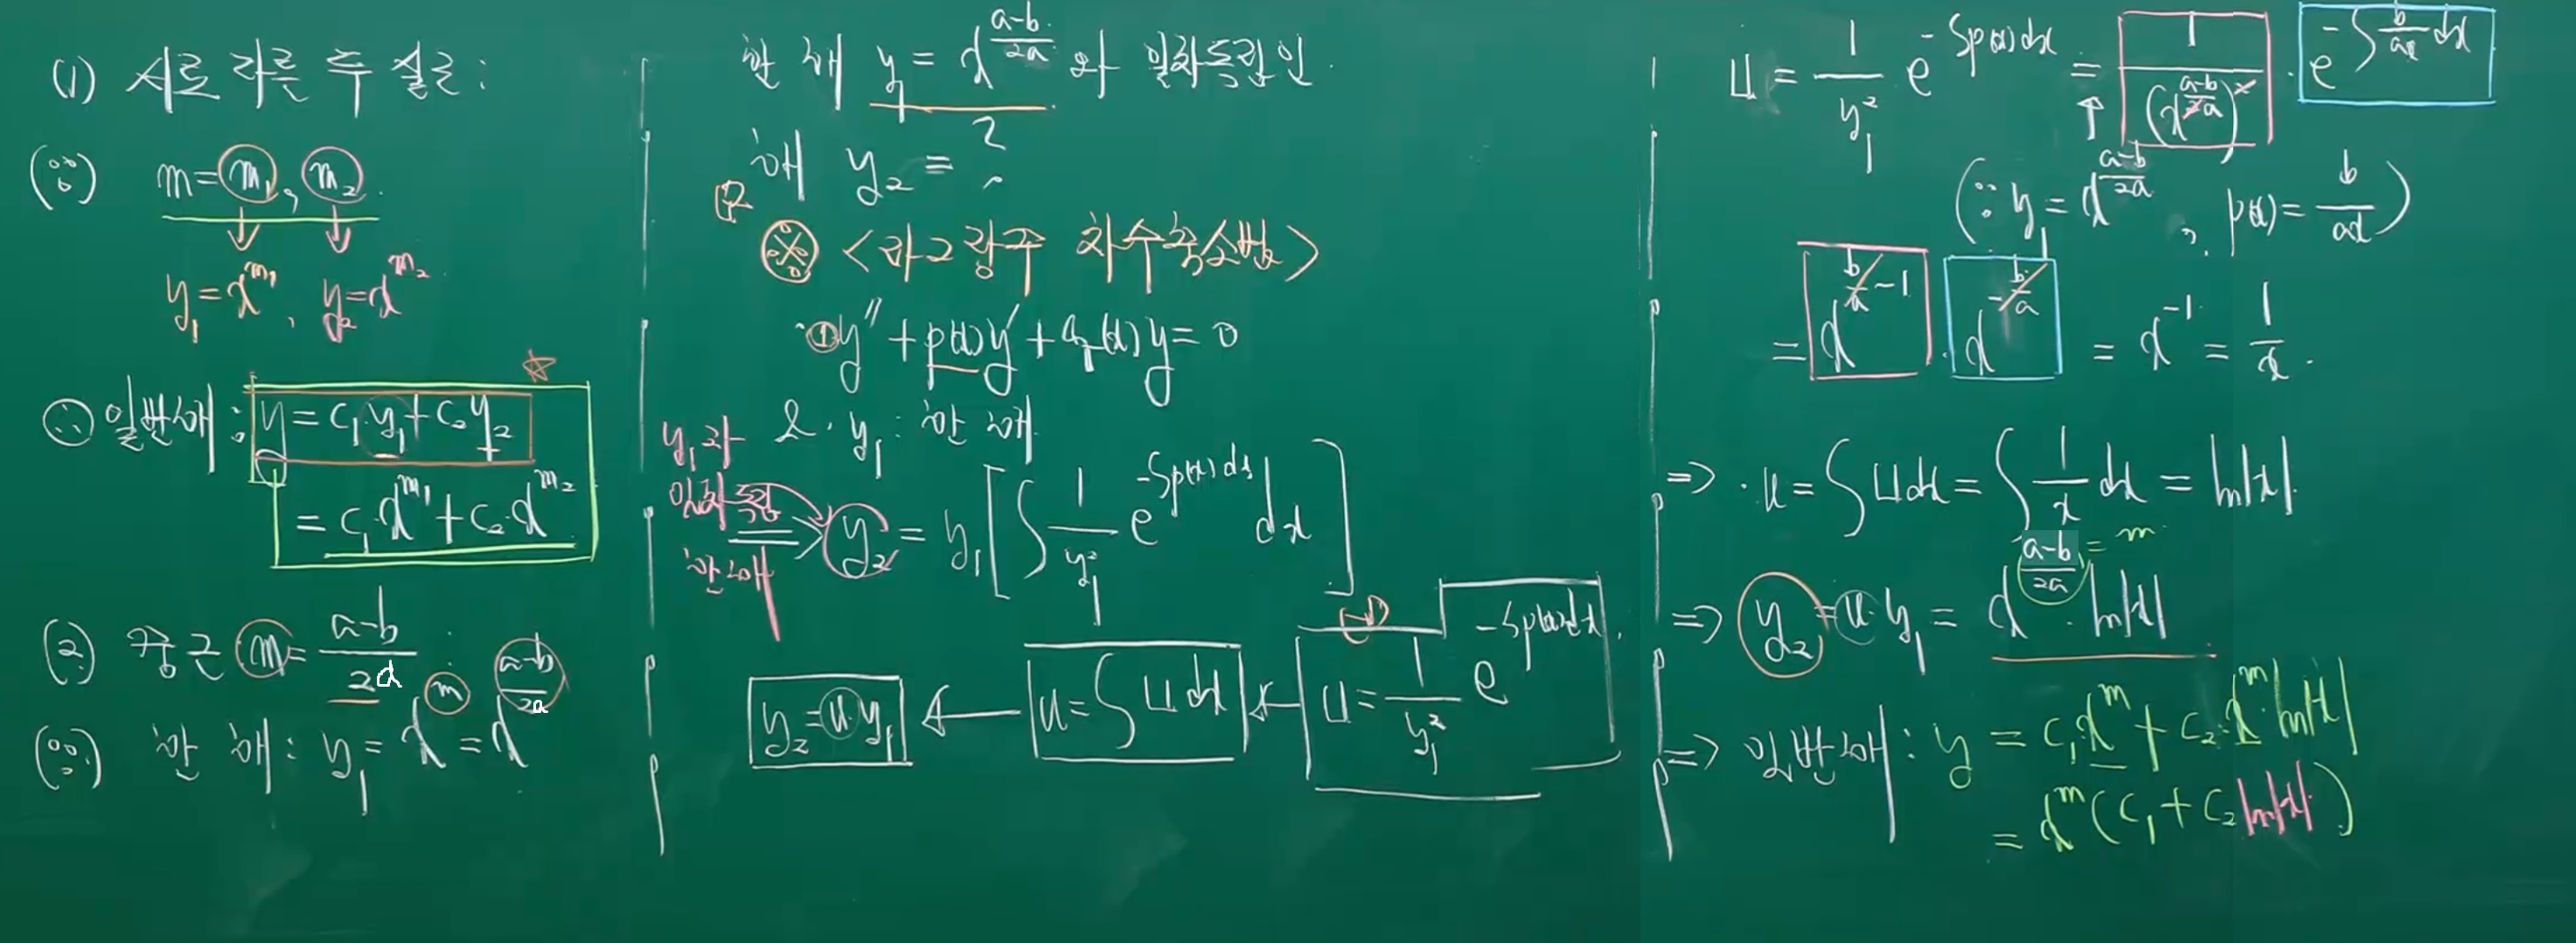 (1) 서로 다른 두 실근:
(∵) m = m₁, m₂.
y₁ = x^m₁, y₂ = x^m₂
∴ 일반해: y = c₁y₁ + c₂y₂
= c₁·x^m₁ + c₂·x^m₂
(2) 중근 m = (a-b)/2d
(∵) 한 해: y₁ = x^m = x^((a-b)/2a)
한 해 y₁ = x^((a-b)/2a) 와 일차독립인
해 y₂ = ?
※ <라그랑주 차수축소법>
① y″ + p(x)y′ + q(x)y = 0
& · y₁: 한 해
y₁과
일차독립
한 해
⇒ y₂ = y₁[∫ 1/y₁² e^(-∫p(x)dx) dx]
y₂ = u·y₁ ← u = ∫U dx ← U = 1/y₁² e^(-∫p(x)dx)
U = 1/y₁² e^(-∫p(x)dx) = 1/(x^((a-b)/2a))² · e^(-∫b/ax dx)
↑
(∵ y₁ = x^((a-b)/2a), p(x) = b/ax)
= x^(b/a-1) · x^(-b/a) = x^-1 = 1/x.
⇒ · u = ∫U dx = ∫ 1/x dx = ln|x|.
⇒ y₂ = u·y₁ = x^((a-b)/2a) · ln|x|
= m
⇒ 일반해: y = c₁x^m + c₂·x^m·ln|x|
= x^m (c₁ + c₂ ln|x|.)